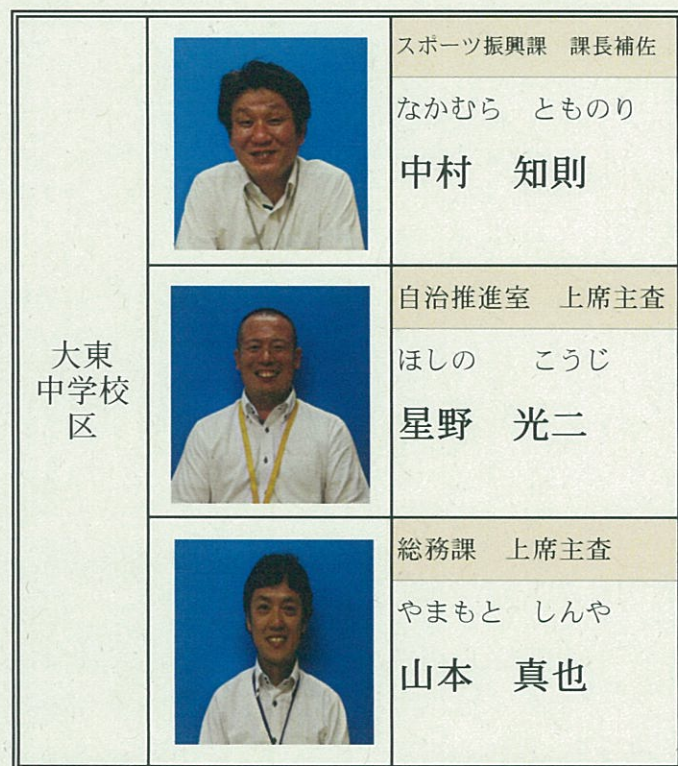 大東
中学校
区
スポーツ振興課　課長補佐
なかむら　とものり
中村　知則
自治推進室　上席主査
ほしの　　こうじ
星野　光二
総務課　上席主査
やまもと　しんや
山本　真也